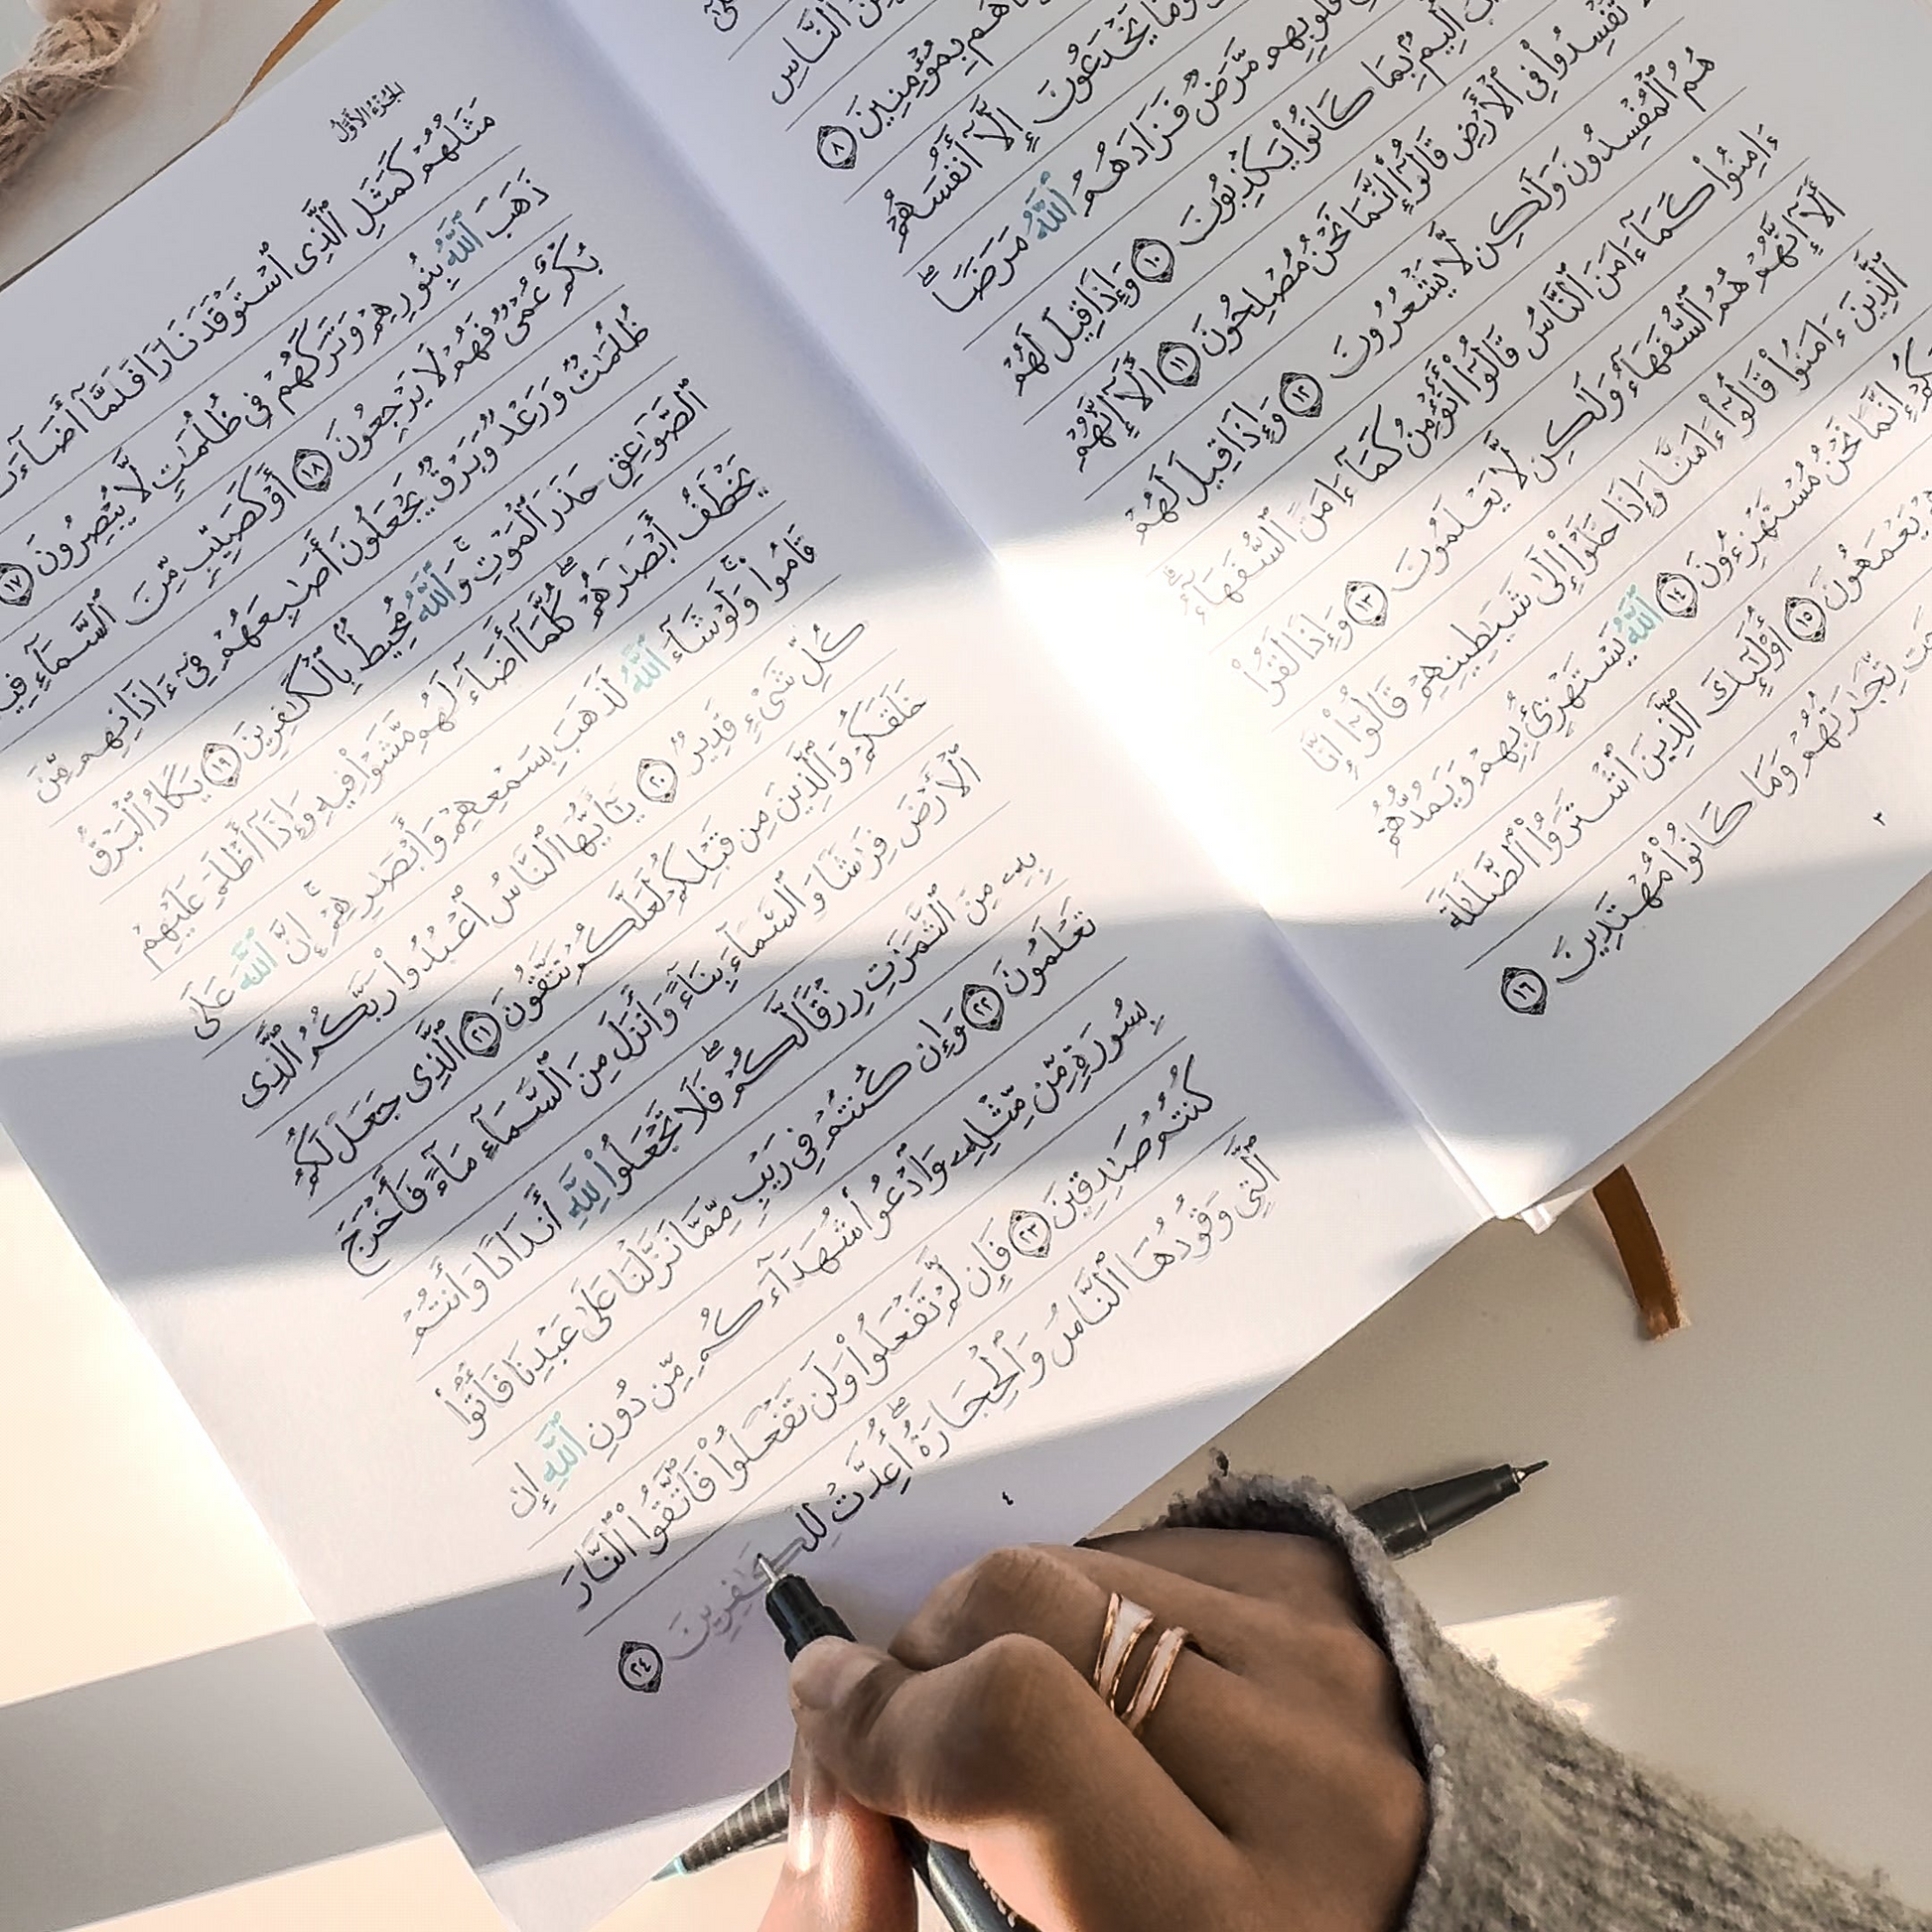 ٱلنَّاسِ
هُم بِمُؤْمِنِينَ ٨
وَمَا يَخْدَعُونَ إِلَّآ أَنفُسَهُمْ
قُلُوبِهِم مَّرَضٌ فَزَادَهُمُ ٱللَّهُ مَرَضًا ۖ
أَلِيمٌۢ بِمَا كَانُوا۟ يَكْذِبُونَ ١٠ وَإِذَا قِيلَ لَهُمْ
تُفْسِدُوا۟ فِى ٱلْأَرْضِ قَالُوٓا۟ إِنَّمَا نَحْنُ مُصْلِحُونَ ١١ أَلَآ إِنَّهُمْ
هُمُ ٱلْمُفْسِدُونَ وَلَٰكِن لَّا يَشْعُرُونَ ١٢ وَإِذَا قِيلَ لَهُمْ
ءَامِنُوا۟ كَمَآ ءَامَنَ ٱلنَّاسُ قَالُوٓا۟ أَنُؤْمِنُ كَمَآ ءَامَنَ ٱلسُّفَهَآءُ ۗ
أَلَآ إِنَّهُمْ هُمُ ٱلسُّفَهَآءُ وَلَٰكِن لَّا يَعْلَمُونَ ١٣ وَإِذَا لَقُوا۟
ٱلَّذِينَ ءَامَنُوا۟ قَالُوٓا۟ ءَامَنَّا وَإِذَا خَلَوْا۟ إِلَىٰ شَيَٰطِينِهِمْ قَالُوٓا۟ إِنَّا
إِنَّمَا نَحْنُ مُسْتَهْزِءُونَ ١٤ ٱللَّهُ يَسْتَهْزِئُ بِهِمْ وَيَمُدُّهُمْ
يَعْمَهُونَ ١٥ أُو۟لَٰٓئِكَ ٱلَّذِينَ ٱشْتَرَوُا۟ ٱلضَّلَٰلَةَ
تِّجَٰرَتُهُمْ وَمَا كَانُوا۟ مُهْتَدِينَ ١٦
٣
الجُزْءُ الأَوَّلُ
مَثَلُهُمْ كَمَثَلِ ٱلَّذِى ٱسْتَوْقَدَ نَارًا فَلَمَّآ أَضَآءَتْ
ذَهَبَ ٱللَّهُ بِنُورِهِمْ وَتَرَكَهُمْ فِى ظُلُمَٰتٍ لَّا يُبْصِرُونَ ١٧
بُكْمٌ عُمْىٌ فَهُمْ لَا يَرْجِعُونَ ١٨ أَوْ كَصَيِّبٍ مِّنَ ٱلسَّمَآءِ فِيهِ
ظُلُمَٰتٌ وَرَعْدٌ وَبَرْقٌ يَجْعَلُونَ أَصَٰبِعَهُمْ فِىٓ ءَاذَانِهِم مِّنَ
ٱلصَّوَٰعِقِ حَذَرَ ٱلْمَوْتِ ۚ وَٱللَّهُ مُحِيطٌۢ بِٱلْكَٰفِرِينَ ١٩ يَكَادُ ٱلْبَرْقُ
يَخْطَفُ أَبْصَٰرَهُمْ ۖ كُلَّمَآ أَضَآءَ لَهُم مَّشَوْا۟ فِيهِ وَإِذَآ أَظْلَمَ عَلَيْهِمْ
قَامُوا۟ ۚ وَلَوْ شَآءَ ٱللَّهُ لَذَهَبَ بِسَمْعِهِمْ وَأَبْصَٰرِهِمْ ۚ إِنَّ ٱللَّهَ عَلَىٰ
كُلِّ شَىْءٍ قَدِيرٌ ٢٠ يَٰٓأَيُّهَا ٱلنَّاسُ ٱعْبُدُوا۟ رَبَّكُمُ ٱلَّذِى
خَلَقَكُمْ وَٱلَّذِينَ مِن قَبْلِكُمْ لَعَلَّكُمْ تَتَّقُونَ ٢١ ٱلَّذِى جَعَلَ لَكُمُ
ٱلْأَرْضَ فِرَٰشًا وَٱلسَّمَآءَ بِنَآءً وَأَنزَلَ مِنَ ٱلسَّمَآءِ مَآءً فَأَخْرَجَ
بِهِۦ مِنَ ٱلثَّمَرَٰتِ رِزْقًا لَّكُمْ ۖ فَلَا تَجْعَلُوا۟ لِلَّهِ أَندَادًا وَأَنتُمْ
تَعْلَمُونَ ٢٢ وَإِن كُنتُمْ فِى رَيْبٍ مِّمَّا نَزَّلْنَا عَلَىٰ عَبْدِنَا فَأْتُوا۟
بِسُورَةٍ مِّن مِّثْلِهِۦ وَٱدْعُوا۟ شُهَدَآءَكُم مِّن دُونِ ٱللَّهِ إِن
كُنتُمْ صَٰدِقِينَ ٢٣ فَإِن لَّمْ تَفْعَلُوا۟ وَلَن تَفْعَلُوا۟ فَٱتَّقُوا۟ ٱلنَّارَ
ٱلَّتِى وَقُودُهَا ٱلنَّاسُ وَٱلْحِجَارَةُ ۖ أُعِدَّتْ لِلْكَٰفِرِينَ ٢٤
٤